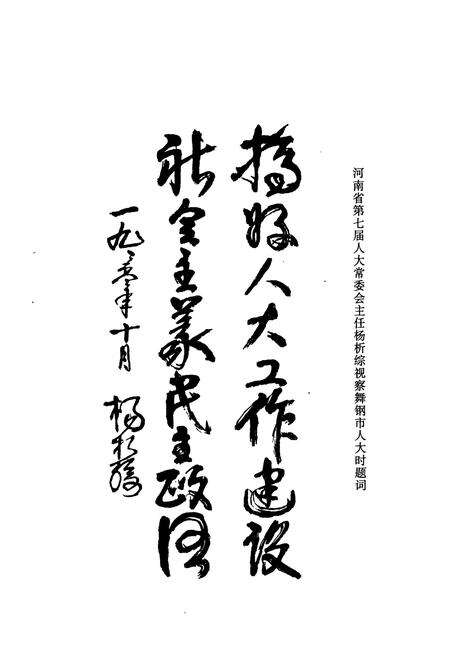 河南省第七届人大常委会主任杨析综视察舞钢市人大时题词
搞好人大工作建设
社会主义民主政治
一九九〇年十月 杨析综